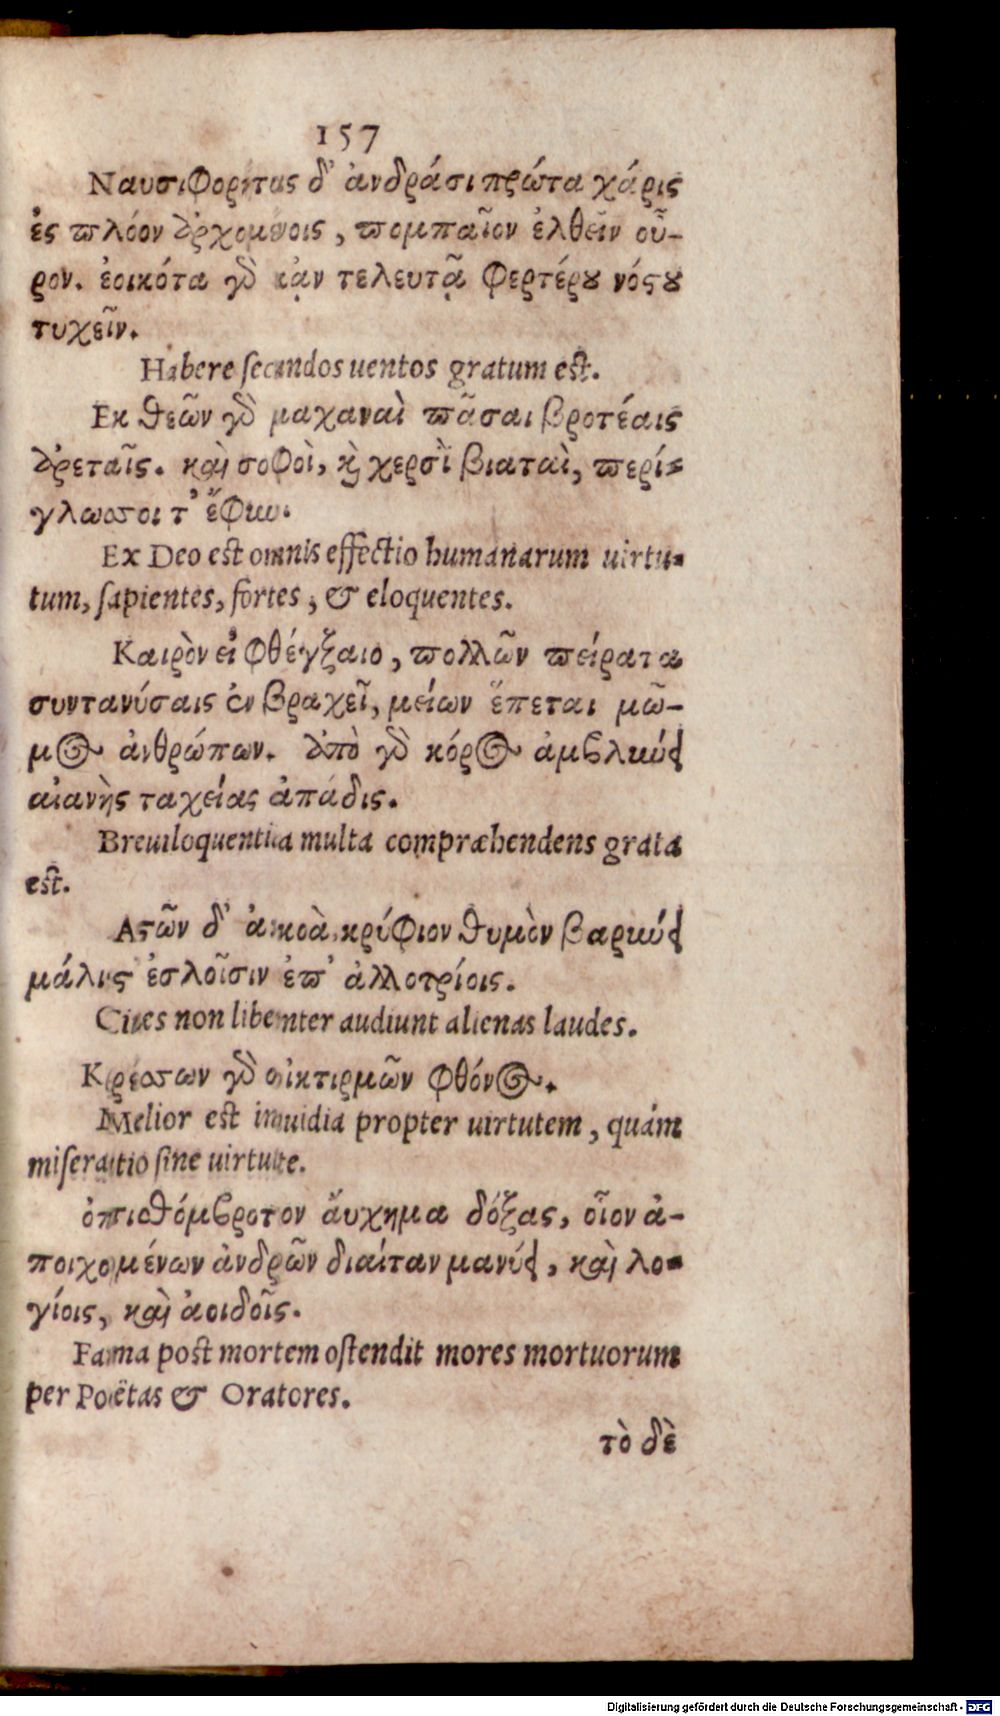 157
Ναυσιφορήτας δ' ἀνδράσι πρώτα χάρις
ἐς πλόον ἀρχομένοις, πομπαῖον ἐλθεῖν οὖ-
ρον. ἐοικότα γὸ κᾀν τελευτᾷ φερτέρȣ νόστȣ
τυχεῖν.
Habere secundos uentos gratum est.
Εκ θεῶν γὸ μαχαναὶ πᾶσαι βροτέαις
ἀρεταῖς. καὶ σοφοὶ, κὶ χερσὶ βιαταὶ, περί-
γλωσσοι τ' ἔφιω.
Ex Deo est omnis effectio humanarum uirtu-
tum, sapientes, fortes, & eloquentes.
Καιρὸν εἰ φθέγξαιο, πολλῶν πείρατα
συντανύσαις ἐν βραχεῖ, μείων ἕπεται μῶ-
μος ἀνθρώπων. ἀπὸ γὸ κόρος ἀμβλιωύει
αἰανὴς ταχείας ἀπάδις.
Breuiloquentia multa compræhendens grata
est.
Αστῶν δ' ἀκοὰ κρύφιον θυμὸν βαριωύει
μάλις ἐσλοῖσιν ἐπ' ἀλλοτρίοις.
Ciues non libenter audiunt alienas laudes.
Κρέσσων γὸ οἰκτιρμῶν φθόνος.
Melior est inuidia propter uirtutem, quám
miseratio sine uirtute.
ὀπισθόμβροτον ἄυχημα δόξας, οἷον ἀ-
ποιχομένων ἀνδρῶν δίαιταν μανύει, καὶ λο-
γίοις, καὶ ἀοιδοῖς.
Fama post mortem ostendit mores mortuorum
per Poëtas & Oratores.
τὸ δὲ
Digitalisierung gefördert durch die Deutsche Forschungsgemeinschaft - DFG